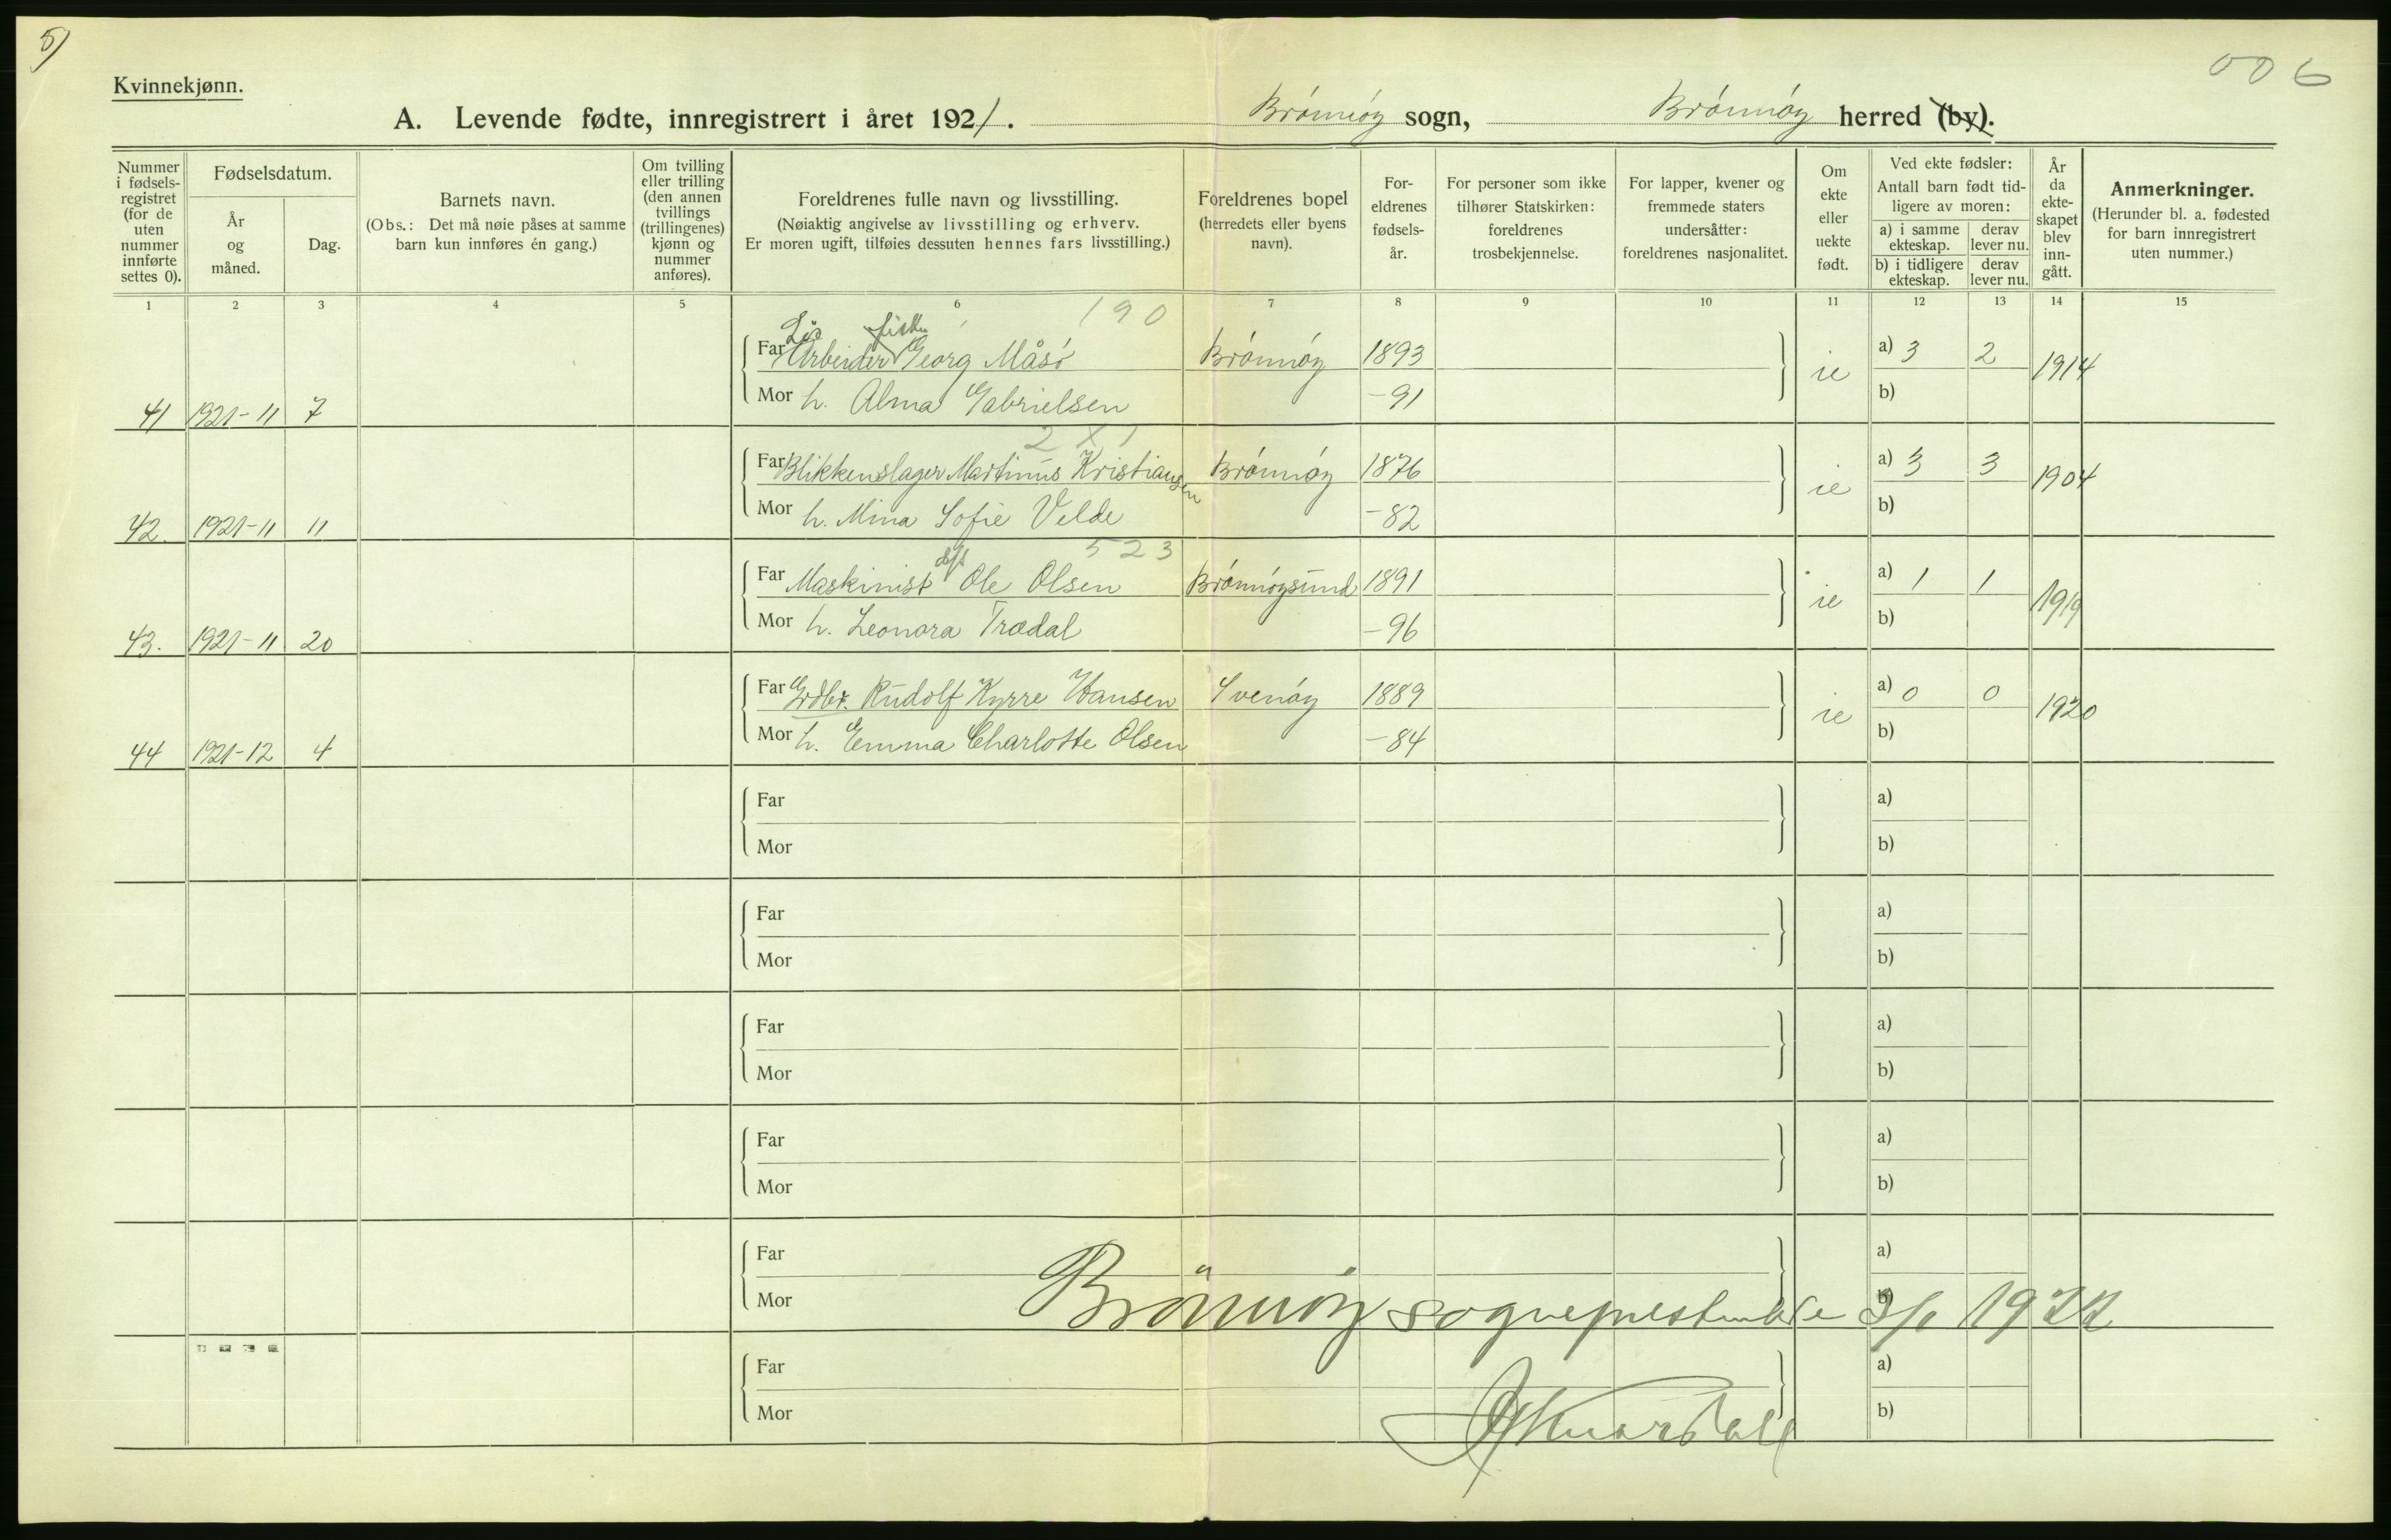 5)
006
Kvinnekjønn.
A. Levende fødte, innregistrert i året 1921. Brönnöy sogn, Brönnöy herred (by).
Nummer i fødsels-registret (for de uten nummer innførte settes 0).
Fødselsdatum.
År og måned.
Dag.
Barnets navn.
(Obs.: Det må nøie påses at samme barn kun innføres én gang.)
Om tvilling eller trilling (den annen tvillings (trillingenes) kjønn og nummer anføres).
Foreldrenes fulle navn og livsstilling.
(Nøiaktig angivelse av livsstilling og erhverv.
Er moren ugift, tilføies dessuten hennes fars livsstilling.)
Foreldrenes bopel (herredets eller byens navn).
For-eldrenes fødsels-år.
For personer som ikke tilhører Statskirken: foreldrenes trosbekjennelse.
For lapper, kvener og fremmede staters undersåtter: foreldrenes nasjonalitet.
Om ekte eller uekte født.
Ved ekte fødsler:
Antall barn født tid-ligere av moren:
a) i samme ekteskap.
derav lever nu.
b) i tidligere ekteskap.
derav lever nu.
År da ekte-skapet blev inn-gått.
Anmerkninger.
(Herunder bl. a. fødested for barn innregistrert uten nummer.)
1 2 3 4 5 6 7 8 9 10 11 12 13 14 15
190
Løs fisker
Far Arbeider Georg Måsö Brönnöy 1893 a) 3 2
41 1921-11 7 Mor h. Alma Gabrielsen -91 ie b) 1914
2 X 1
Far Blikkenslager Martinus Kristiansen Brönnöy 1876 a) 3 3
42. 1921-11 11 Mor h. Mina Sofie Velde -82 ie b) 1904
523
Far Maskinist Ole Olsen Brönnöysund 1891 a) 1 1
43. 1921-11 20 Mor h. Leonora Trædal -96 ie b) 1919
Far Grdbr. Rudolf Kyrre Hansen Svenöy 1889 a) 0 0
44 1921-12 4 Mor h. Emma Charlotte Olsen -84 ie b) 1920
Far a)
Mor b)
Far a)
Mor b)
Far a)
Mor b)
Far a)
Mor b)
Far a)
Mor b)
Brönnöy sogneprestembede 3/1 1922
Far a)
Mor b)